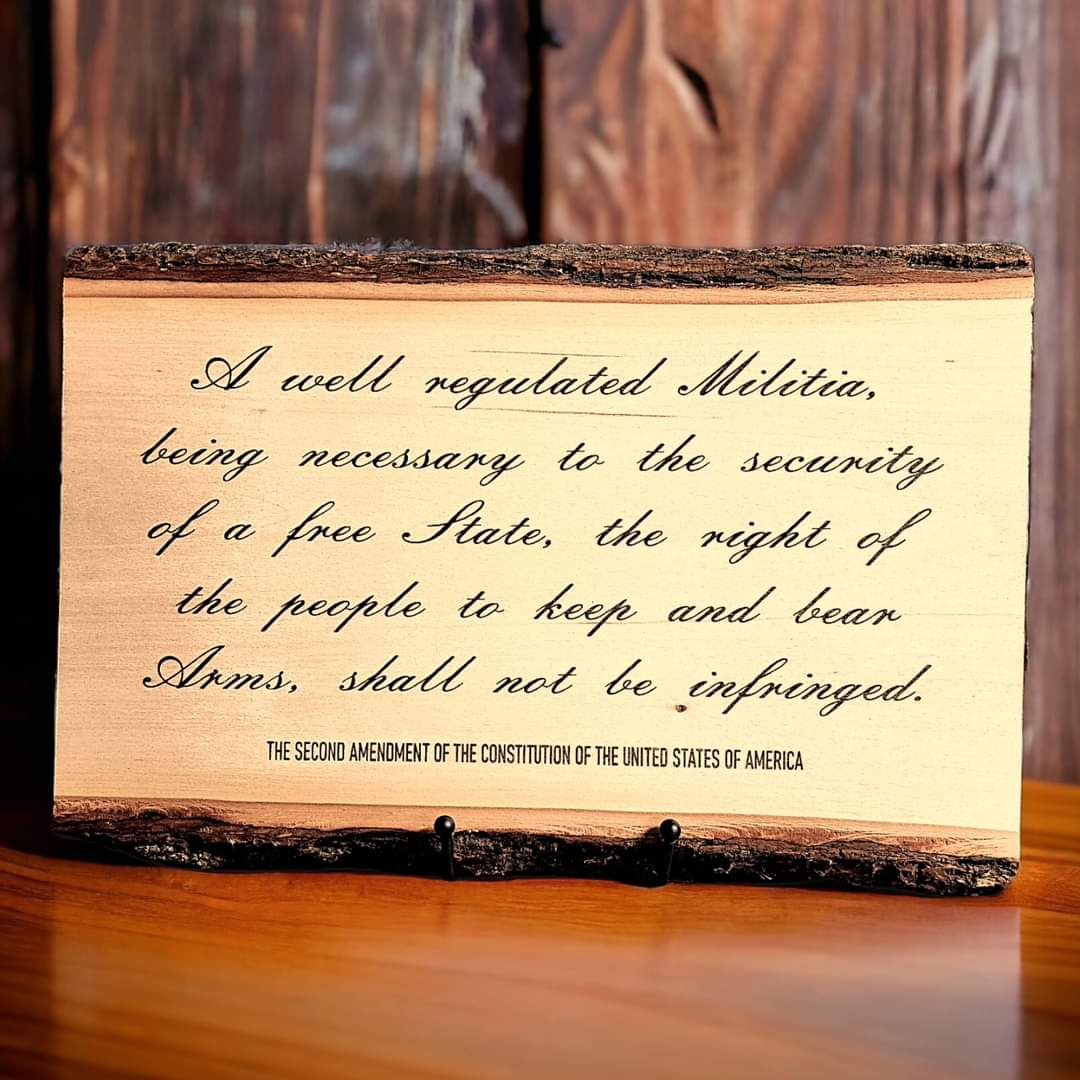 A well regulated Militia,
being necessary to the security
of a free State, the right of
the people to keep and bear
Arms, shall not be infringed.
THE SECOND AMENDMENT OF THE CONSTITUTION OF THE UNITED STATES OF AMERICA